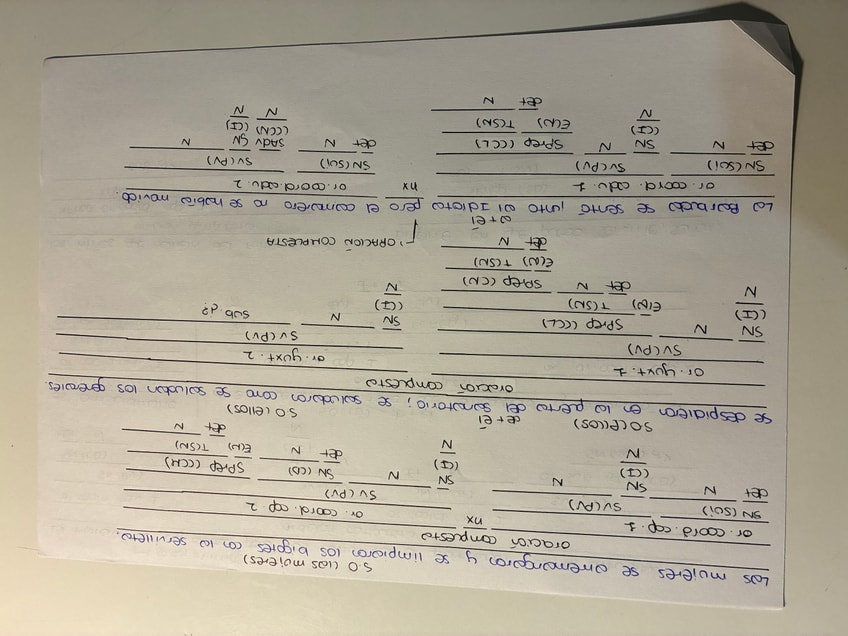 S.O (las mujeres)
Las mujeres se arremangaron y se limpiaron los bigotes con la servilleta.
oración compuesta
or. coord. cop. 1 nx or. coord. cop. 2
SN (SUJ) SV (PV) SV (PV)
det N SN N SN N SN (CD) SPrep (CCI)
(CI) (CI) det N E(N) T(SN)
N N det N
SO (ellos) de + el SO (ellos)
se despidieron en la puerta del sanatorio; se saludaron como se saludan los generales.
oración compuesta
or. yuxt. 1 or. yuxt. 2
SV (PV) SV (PV)
SN N SPrep (CCL) SN N sub. g?
(CI) E(N) T(SN) (CI)
N det N SPrep (CN) N
E(N) T(SN)
det N
oración compuesta
a + el
La Barbuda se sentó junto al Idiota pero el camarero no se había movido.
or. coord. adv. 1 nx or. coord. adv. 2
SN (SUJ) SV (PV) SN (SUJ) SV (PV)
det N SN N SPrep (CCL) det N SAdv SN N
(CI) E(N) T(SN) (CCN) (CI)
N det N N N